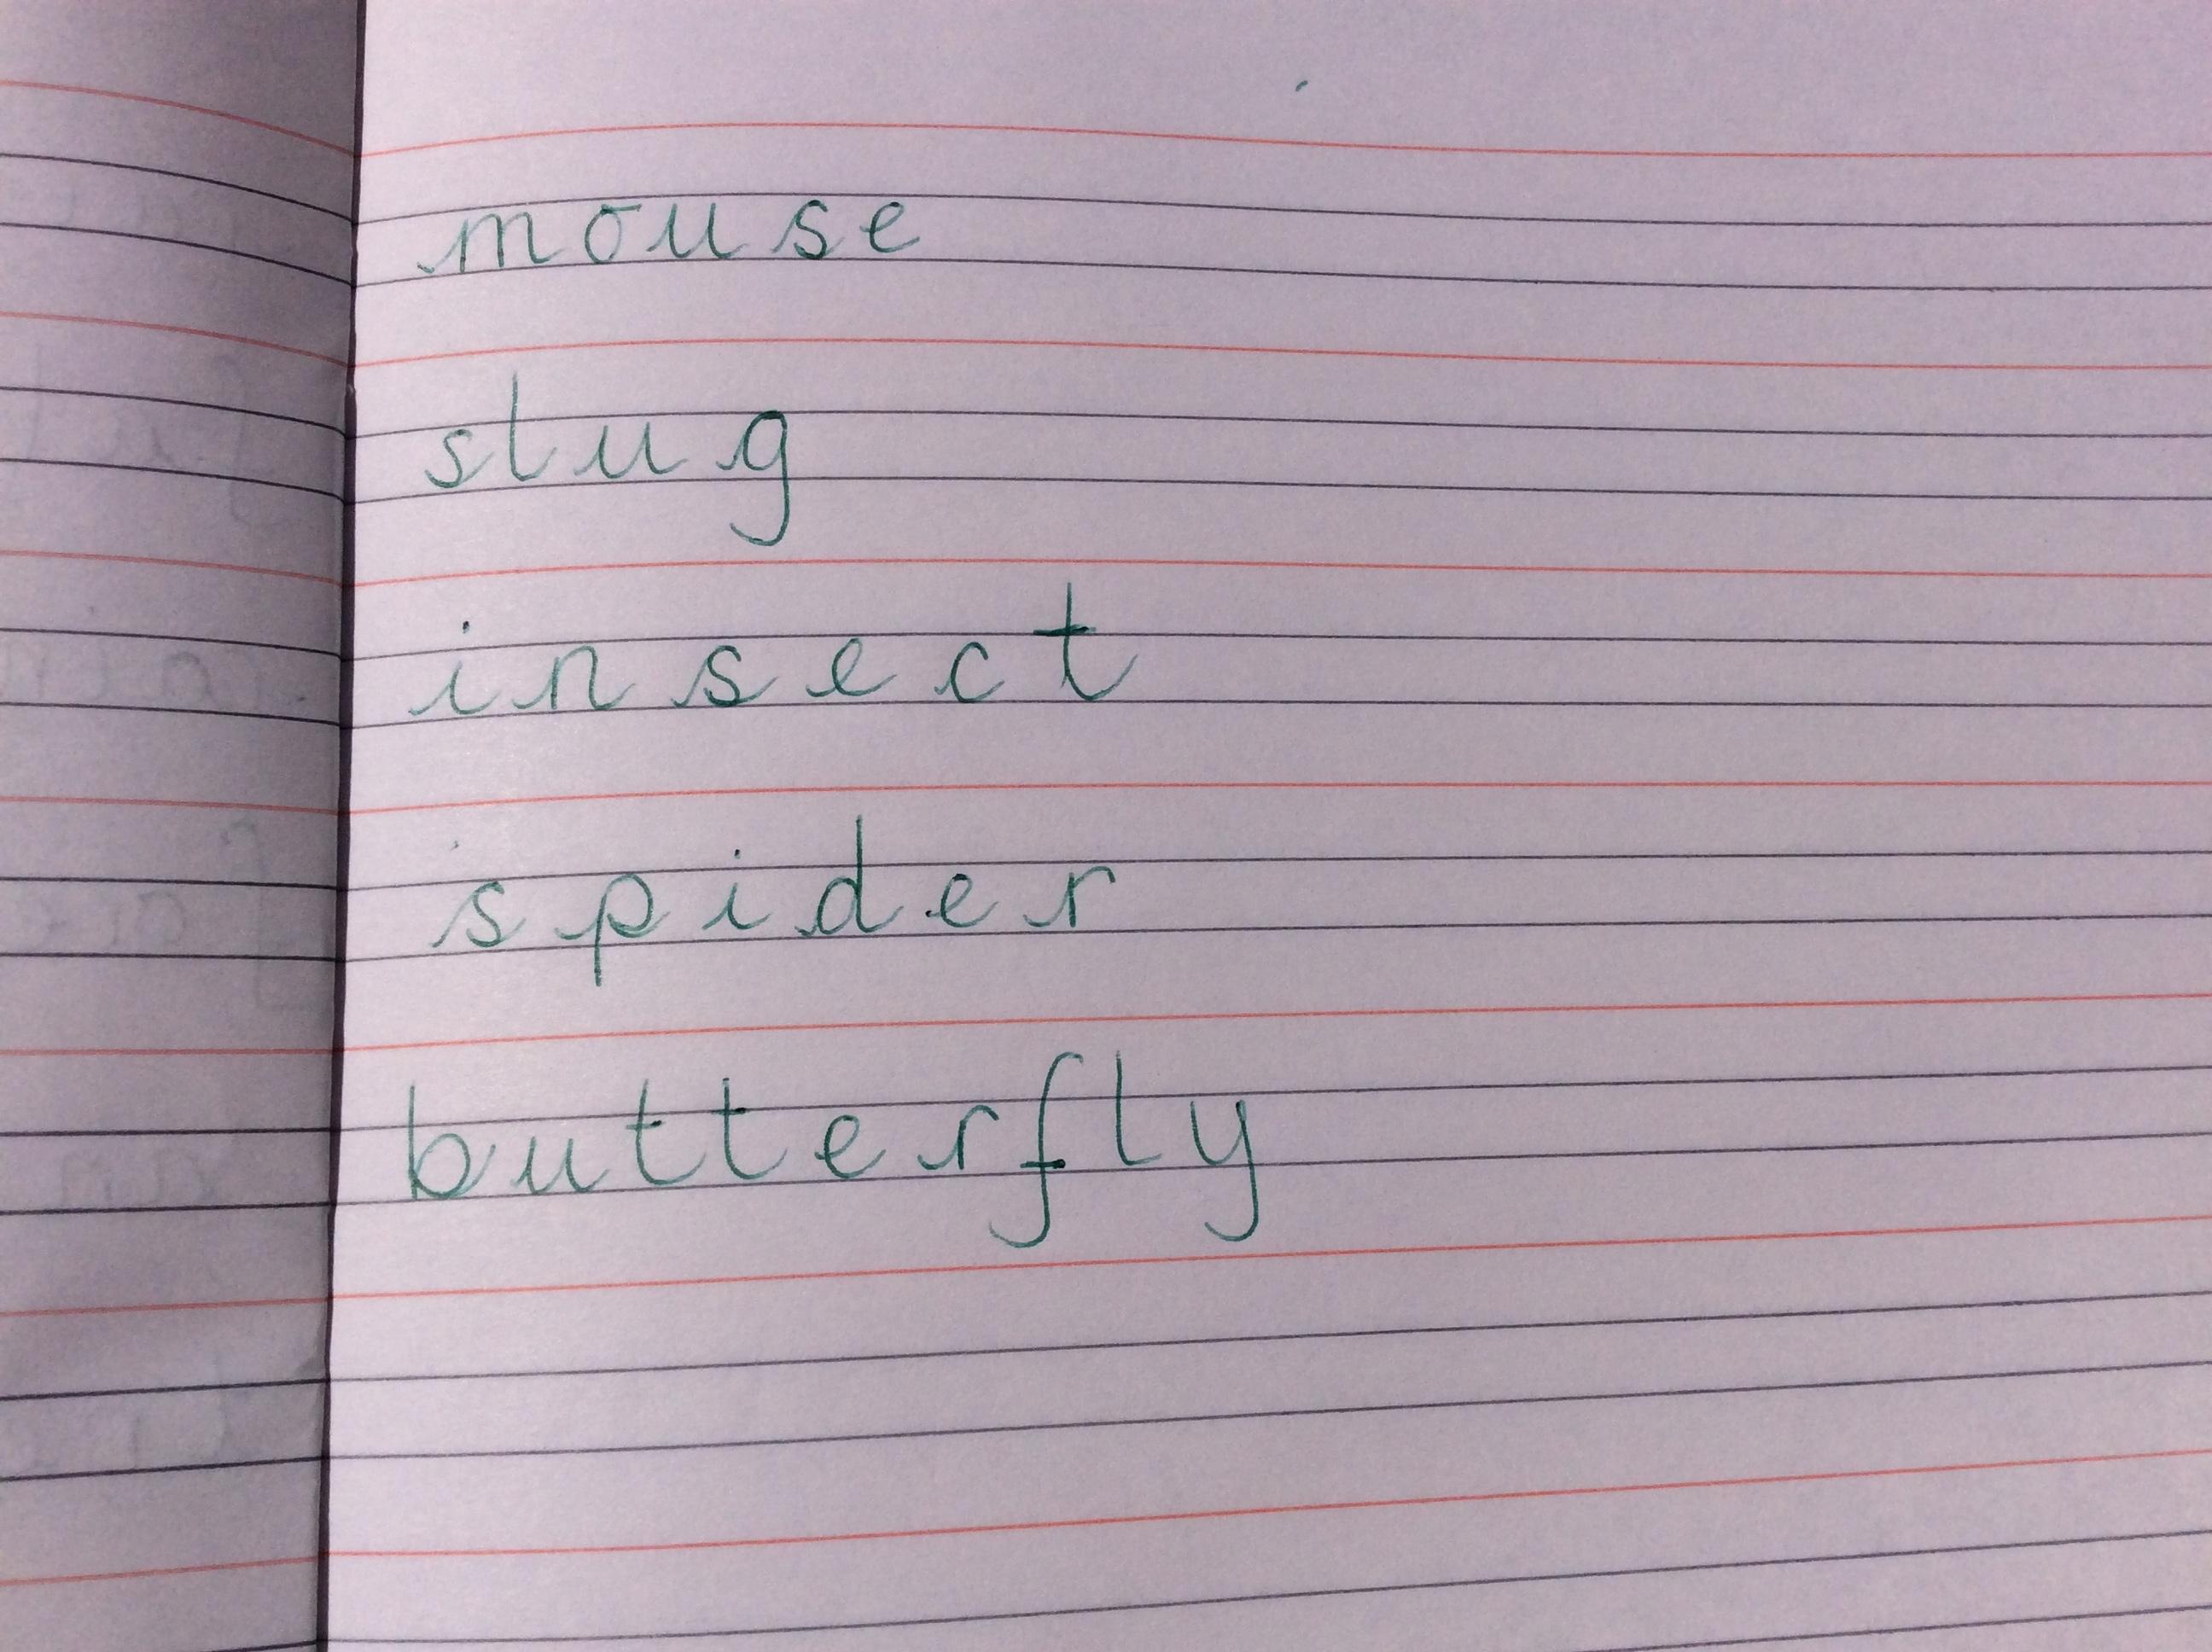 mouse
slug
insect
spider
butterfly